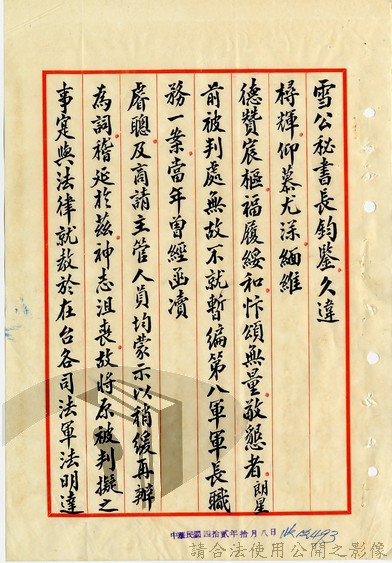 雪公秘書長鈞鑒久違
樽輝仰慕尤深緬維
德贊宸樞福履綏和忭頌無量敬懇者朗星
前被判處無故不就暫編第八軍軍長職
務一案當年曾經函瀆
睿聰及商請主管人員均蒙示以稍緩再辦
為詞稽延於茲神志沮喪故將原被判擬之
事定與法律就教於在台各司法軍法明達
中華民國四拾貳年拾月八日
請合法使用公開之影像